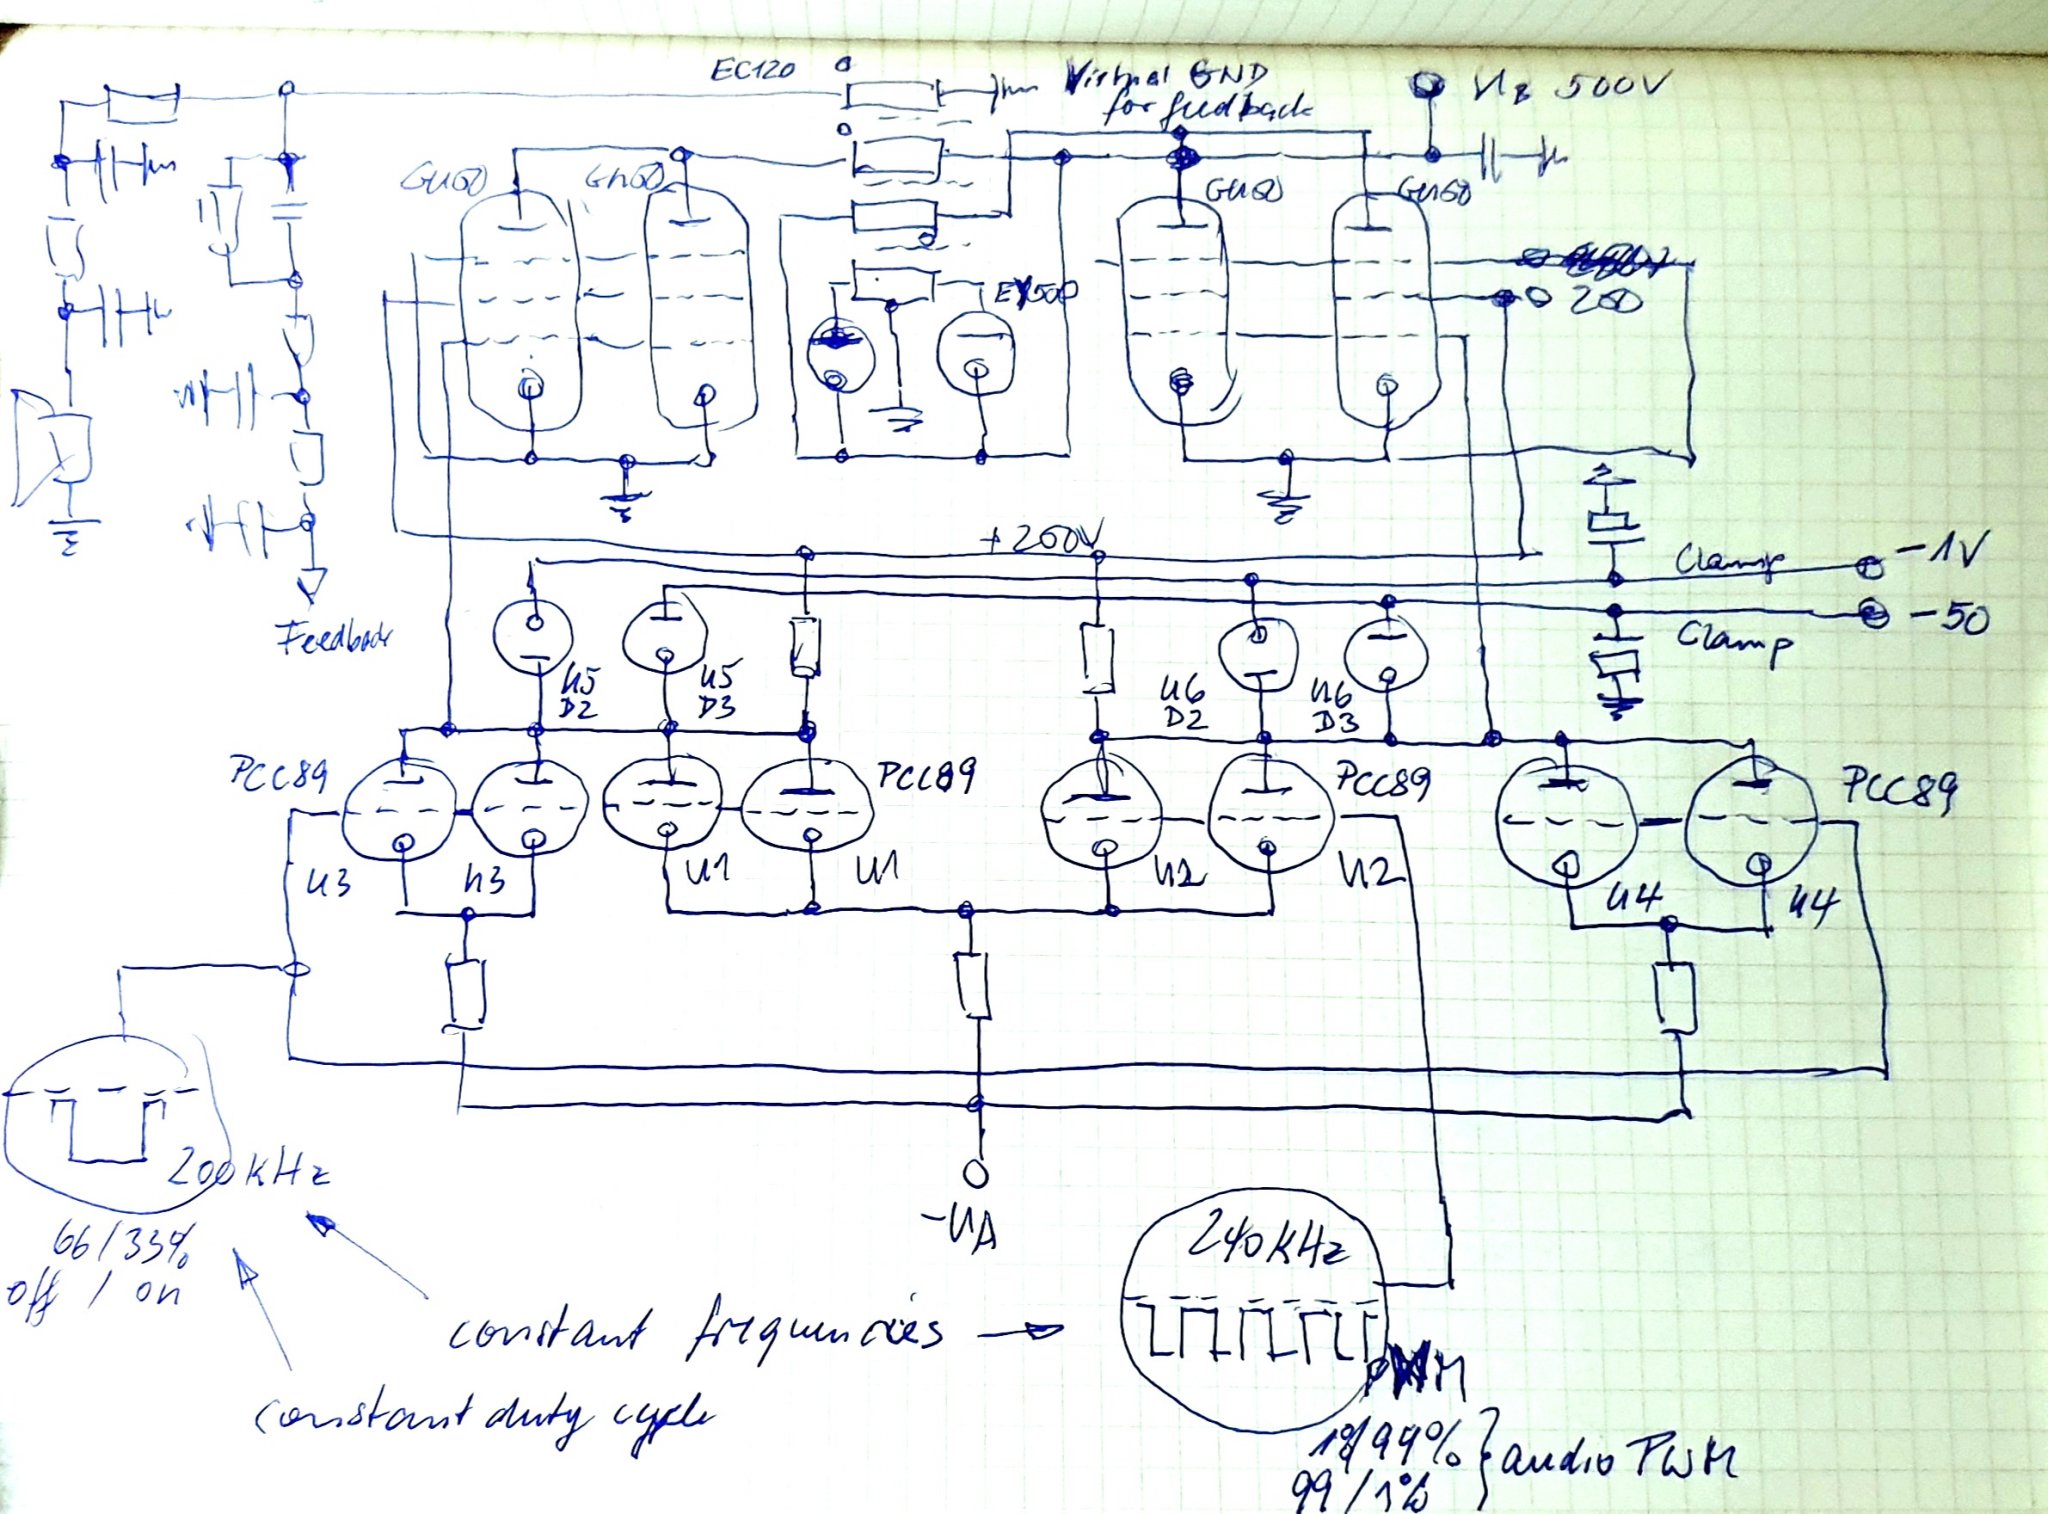 EC120
Virtual GND
for feedback
UB 500V
GU50
GU50
GU50
GU50
EY500
200
+200V
Clamp
-1V
Clamp
-50
Feedback
U5
D2
U5
D3
U6
D2
U6
D3
PCC89
PCC89
PCC89
PCC89
U3
U3
U1
U1
U2
U2
U4
U4
200kHz
66/33%
off / on
-UA
240kHz
constant frequencies
PWM
constant duty cycle
99/1%
audio PWM